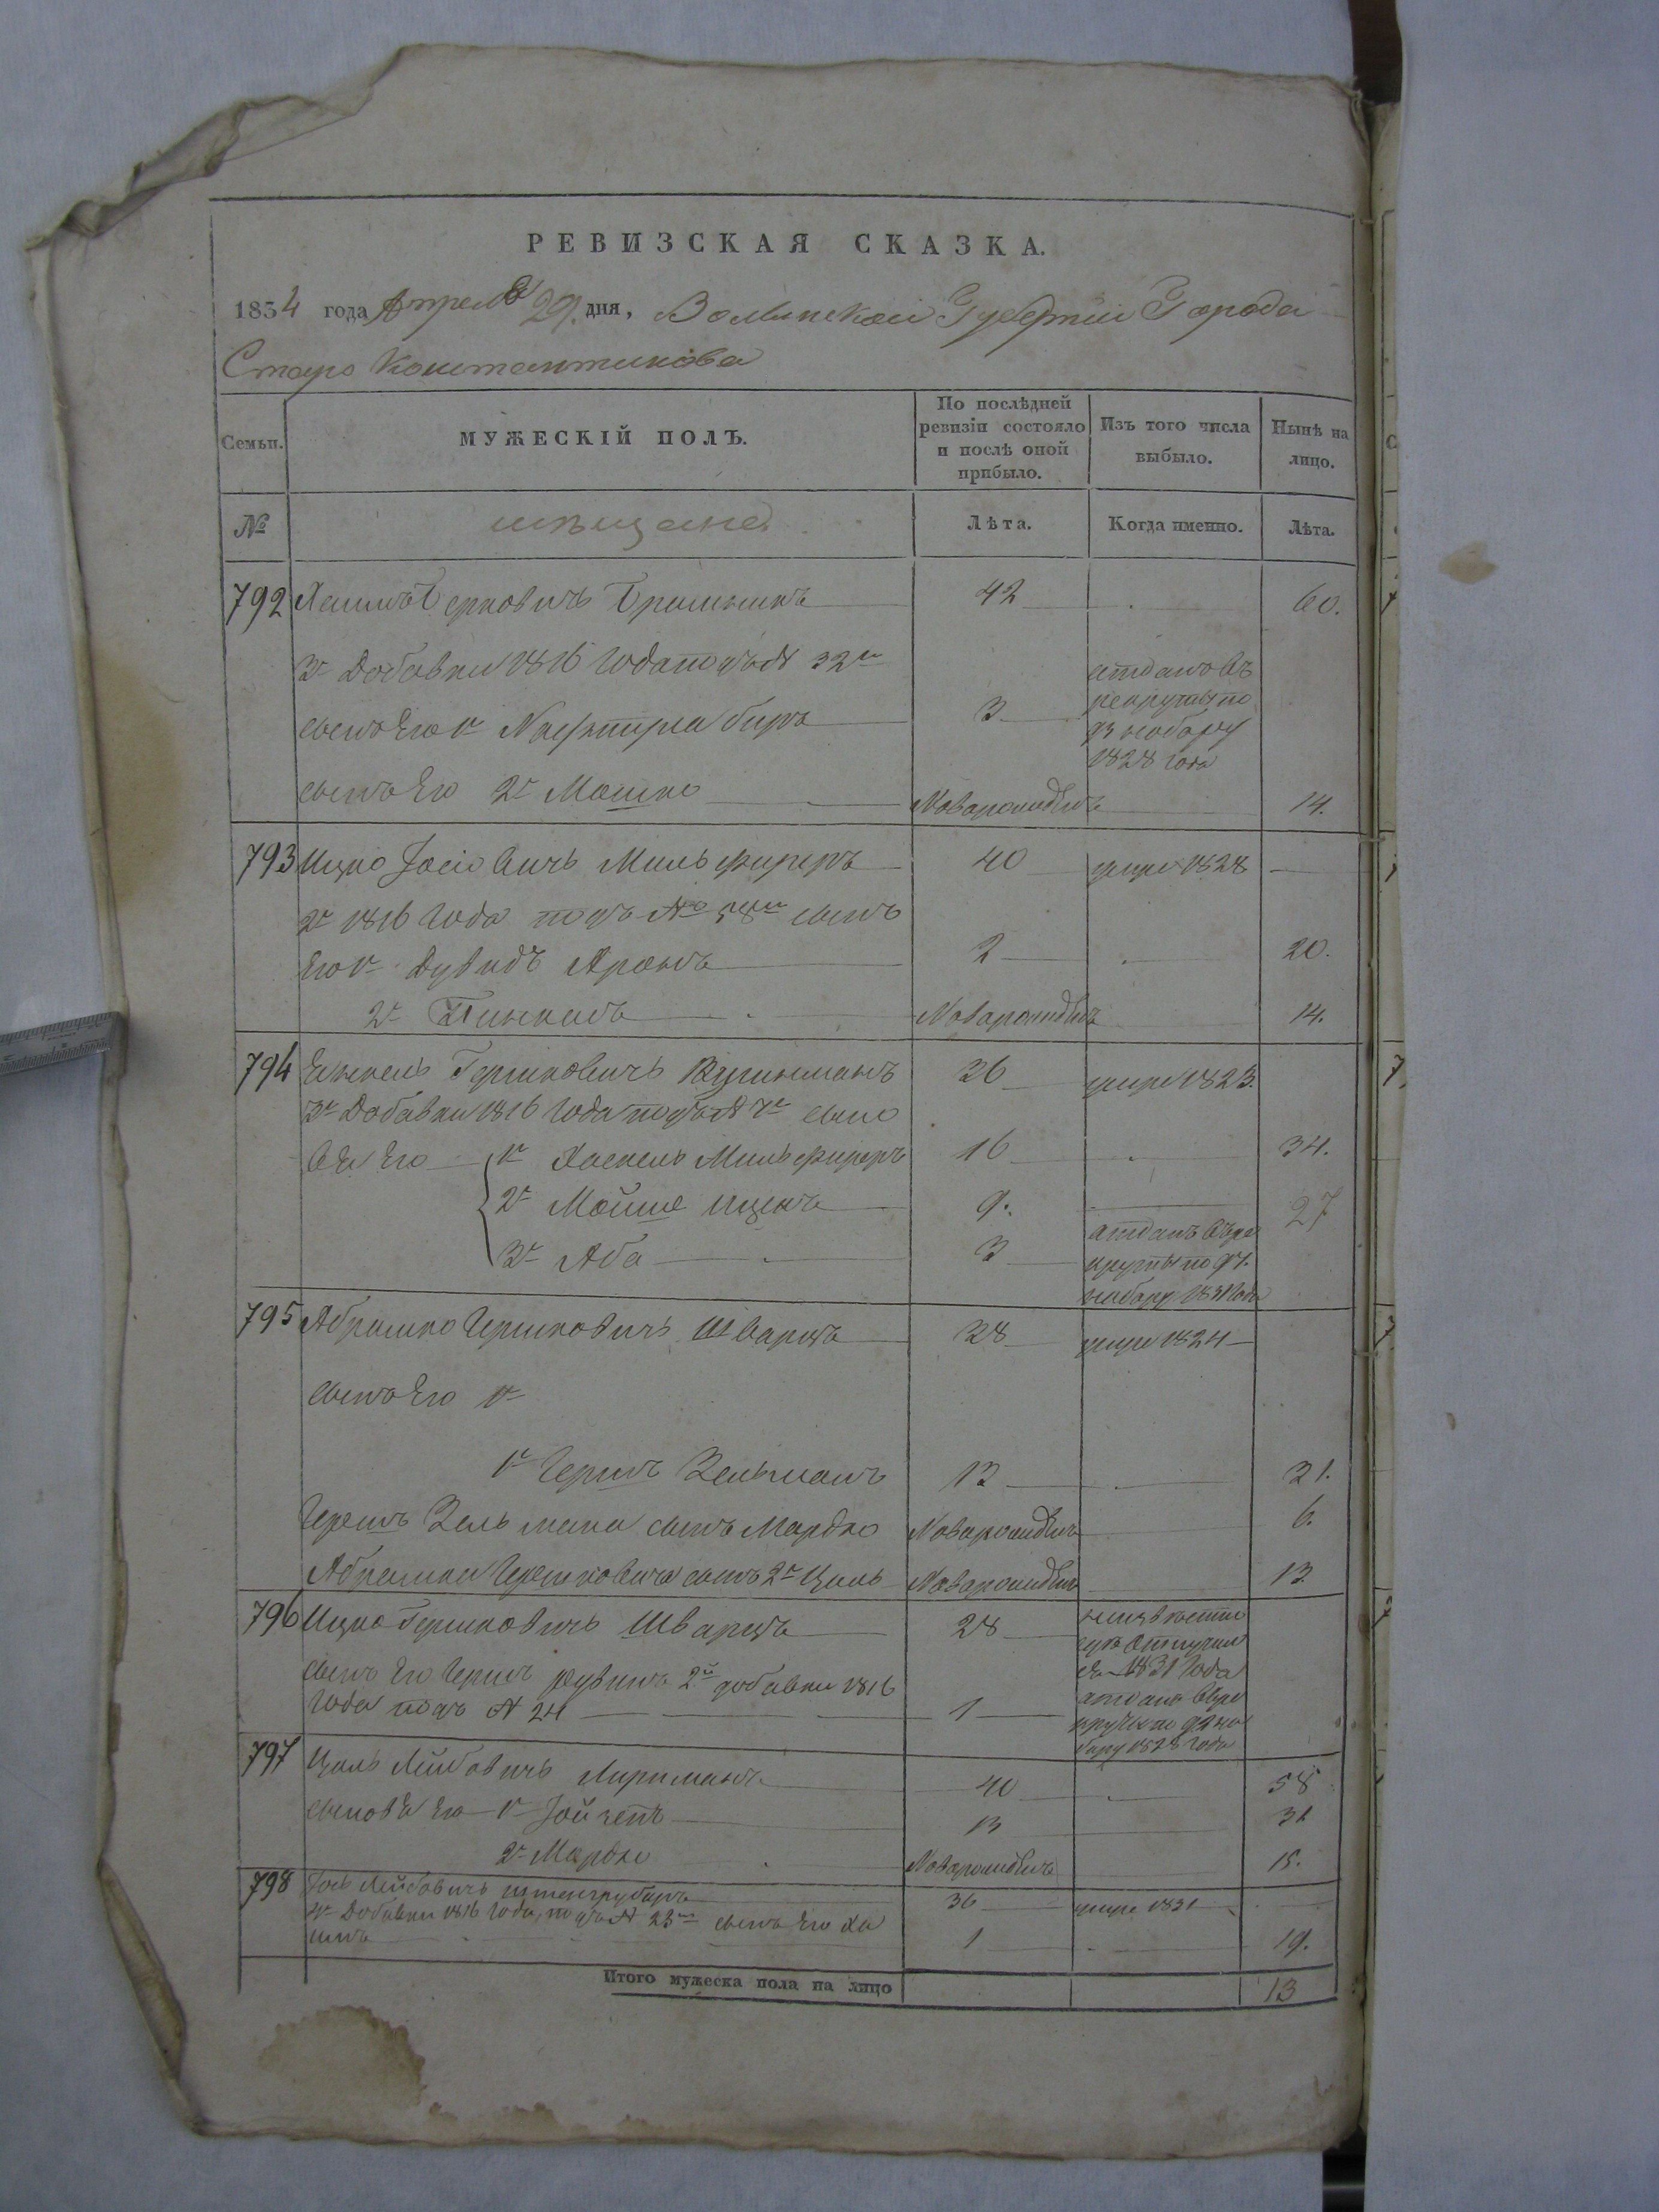 РЕВИЗСКАЯ СКАЗКА.
1834 года Апреля 29. дня, Волынской Губерніи Города
Старо Константинова
Семьи.
МУЖЕСКІЙ ПОЛЪ.
По послѣдней ревизіи состояло и послѣ оной прибыло.
Изъ того числа выбыло.
Нынѣ на лицо.
№
мѣщане
Лѣта.
Когда именно.
Лѣта.
792 Берковичъ 42 60.
3я Добавки 1816 года подъ № 32м отданъ въ
сынъ Его 1й 3 рекруты по
93 набору
1828 года
сынъ Его 2й Мошко Новорожденъ 14.
793 Ицко Іосіовичъ Мильфиреръ 40 умре 1828
2я 1816 года подъ № 58м сынъ
Его 1й Дувидъ Аронъ 2 20.
2й Пинкасъ Новорожденъ 14.
794 Гершковичъ 36 умре 1823.
3я Добавки 1816 года подъ № сыно
вья Его 1й Хаскель Мильфиреръ 16 34.
2й Мойше Ицекъ 9. 27
3й Аба 3 отданъ въ ре
круты по
набору 1831 года
795 Абрамко Гершковичъ Шварцъ 28 умре 1824
сынъ Его 1й
1й Гершъ Зельманъ 13 31.
Гершъ Зельмана сынъ Мордко Новорожденъ 6.
Абрамка Гершковича сынъ 2й Цаль Новорожденъ 13
796 Ицко Гершковичъ Шварцъ 28
1831 года
сынъ Его Гершъ 2й добавки 1816
года подъ № 24 1 отданъ въ ре
круты по 92 на
бору 1828 года
797 Цаль Лейбовичъ 40 58
сыновья Его 1й 13 31
2й Мордко Новорожденъ 15.
798 Іось Лейбовичъ 36 умре 1831
Добавки 1816 года, подъ № 23м сынъ Его Ха
имъ 1 19.
Итого мужеска пола на лицо 13